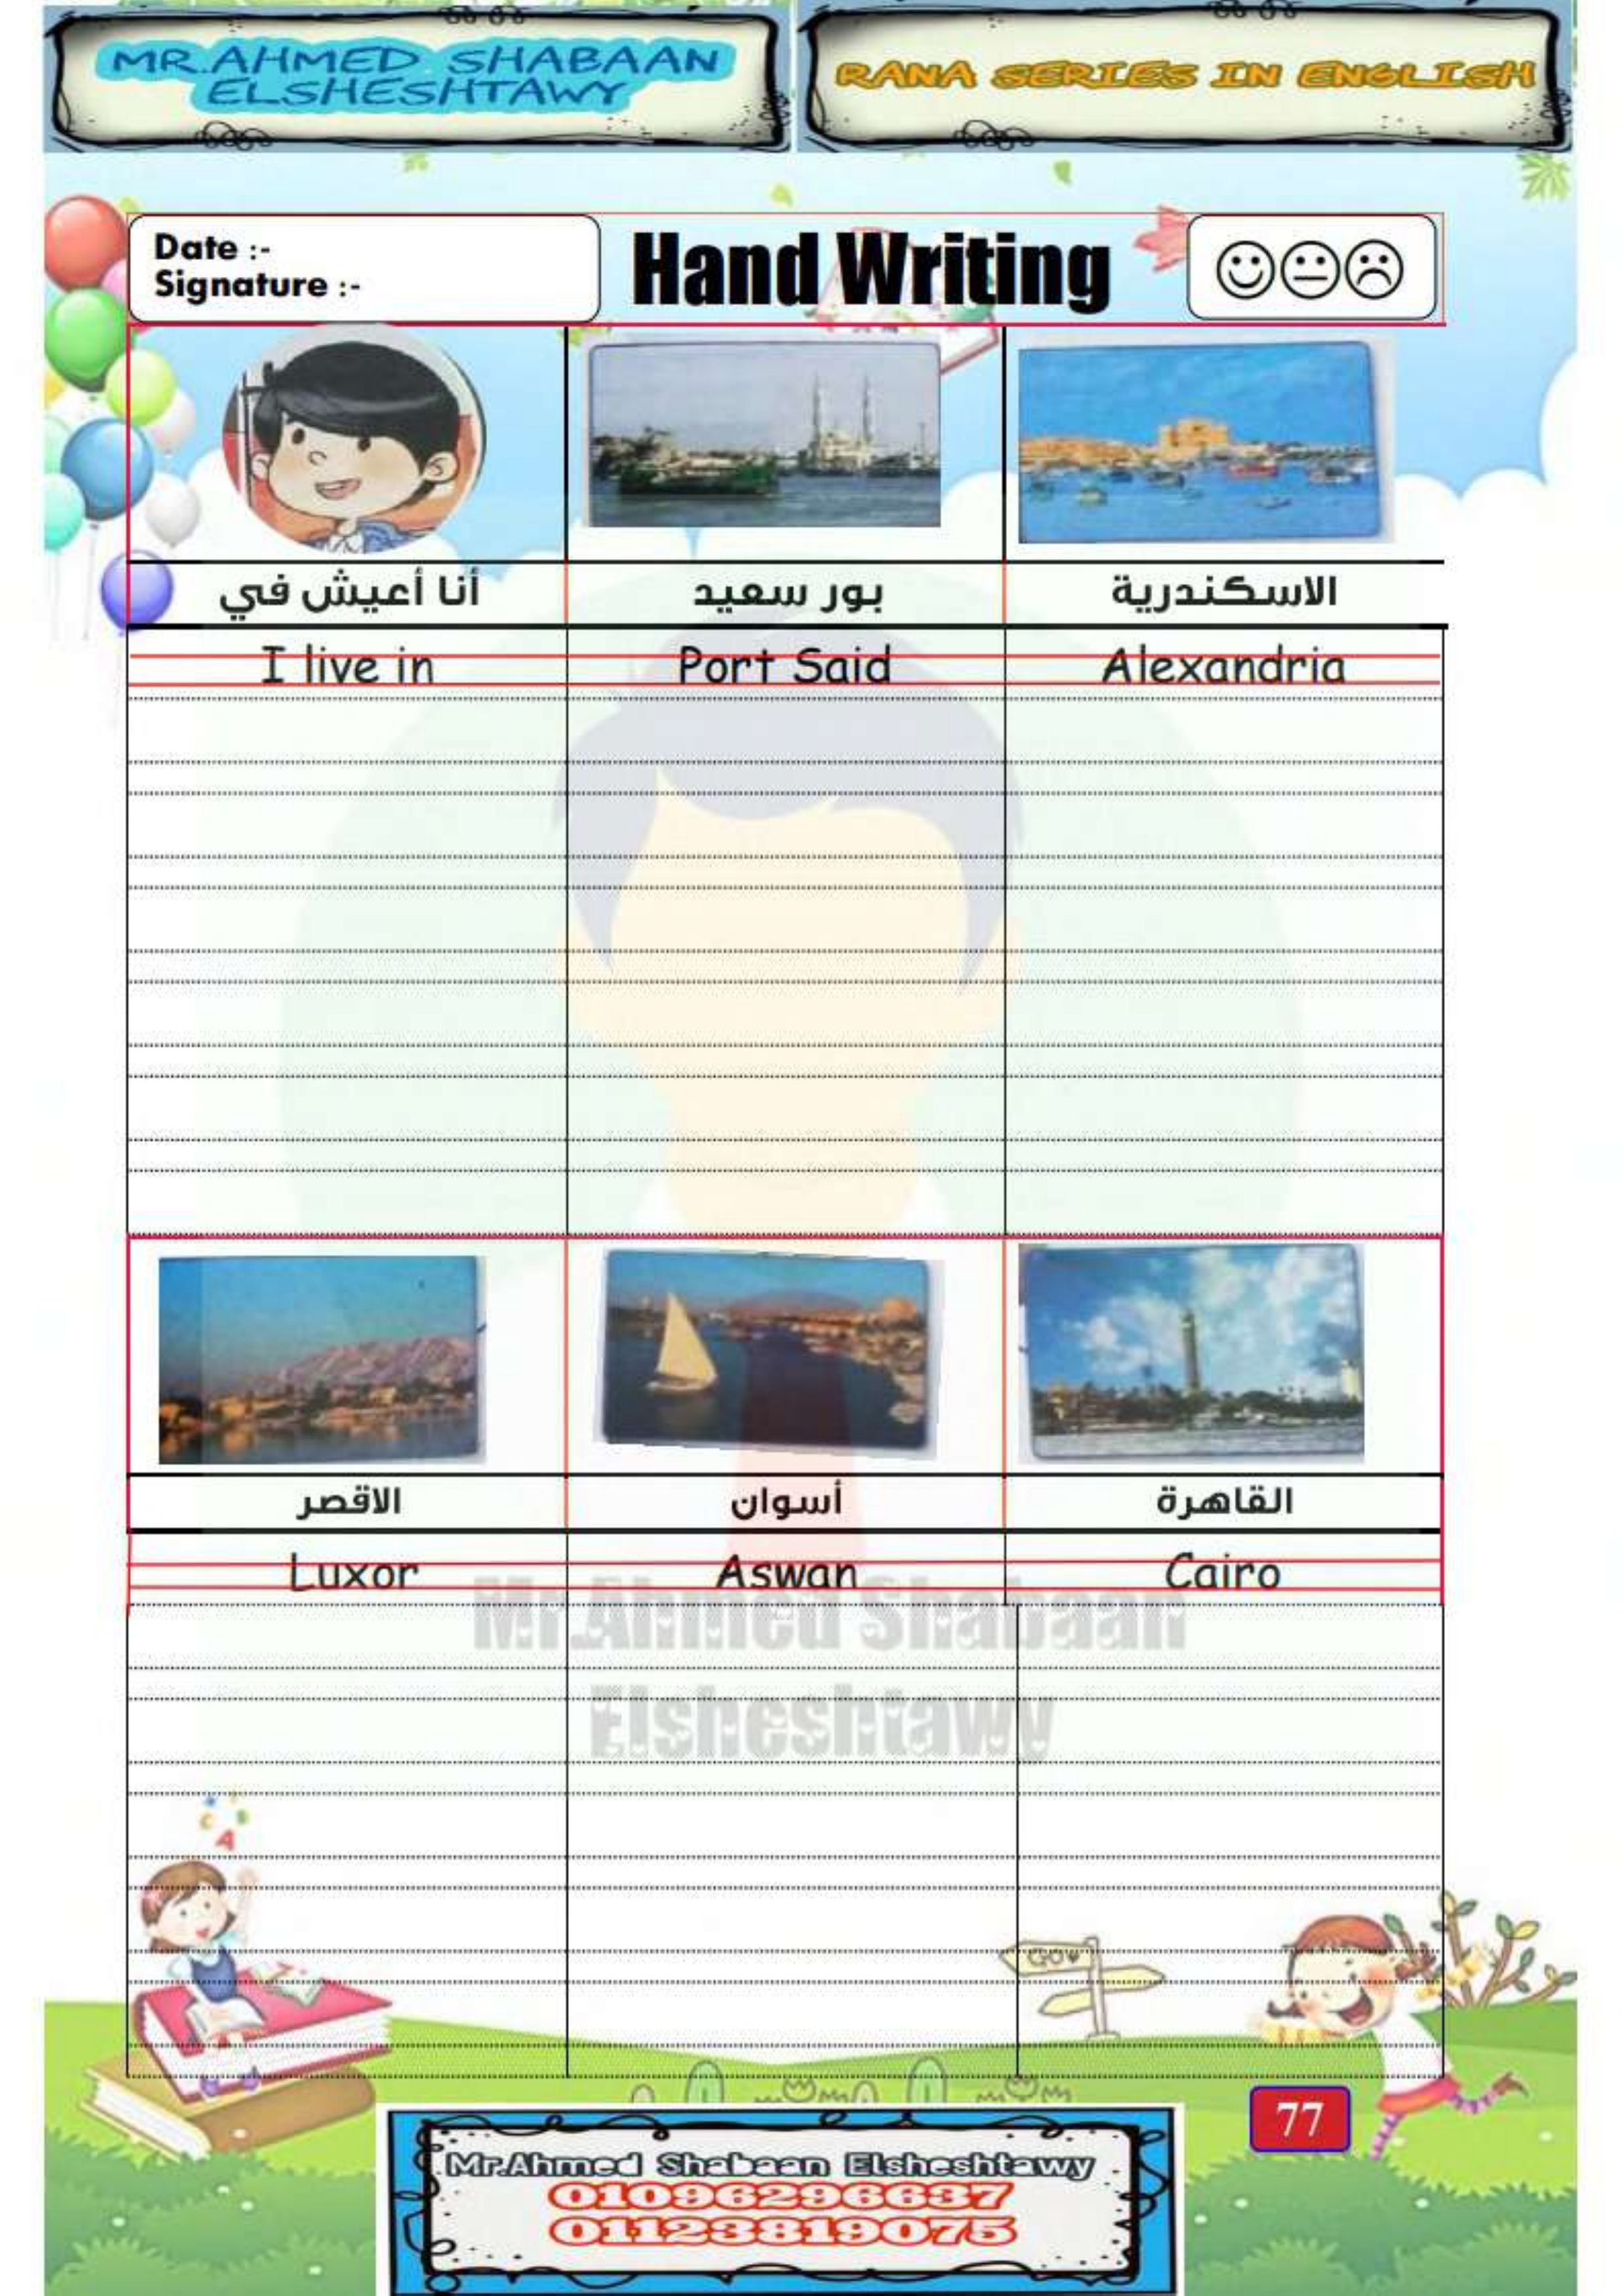 MR.AHMED SHABAAN
ELSHESHTAWY
RANA SERIES IN ENGLISH
Date :-
Signature :-
Hand Writing
أنا أعيش في
بور سعيد
الاسكندرية
I live in
Port Said
Alexandria
الاقصر
أسوان
القاهرة
Luxor
Aswan
Cairo
Mr.Ahmed Shabaan
Elsheshtawy
A
77
Mr.Ahmed Shabaan Elsheshtawy
01096296637
01123819075